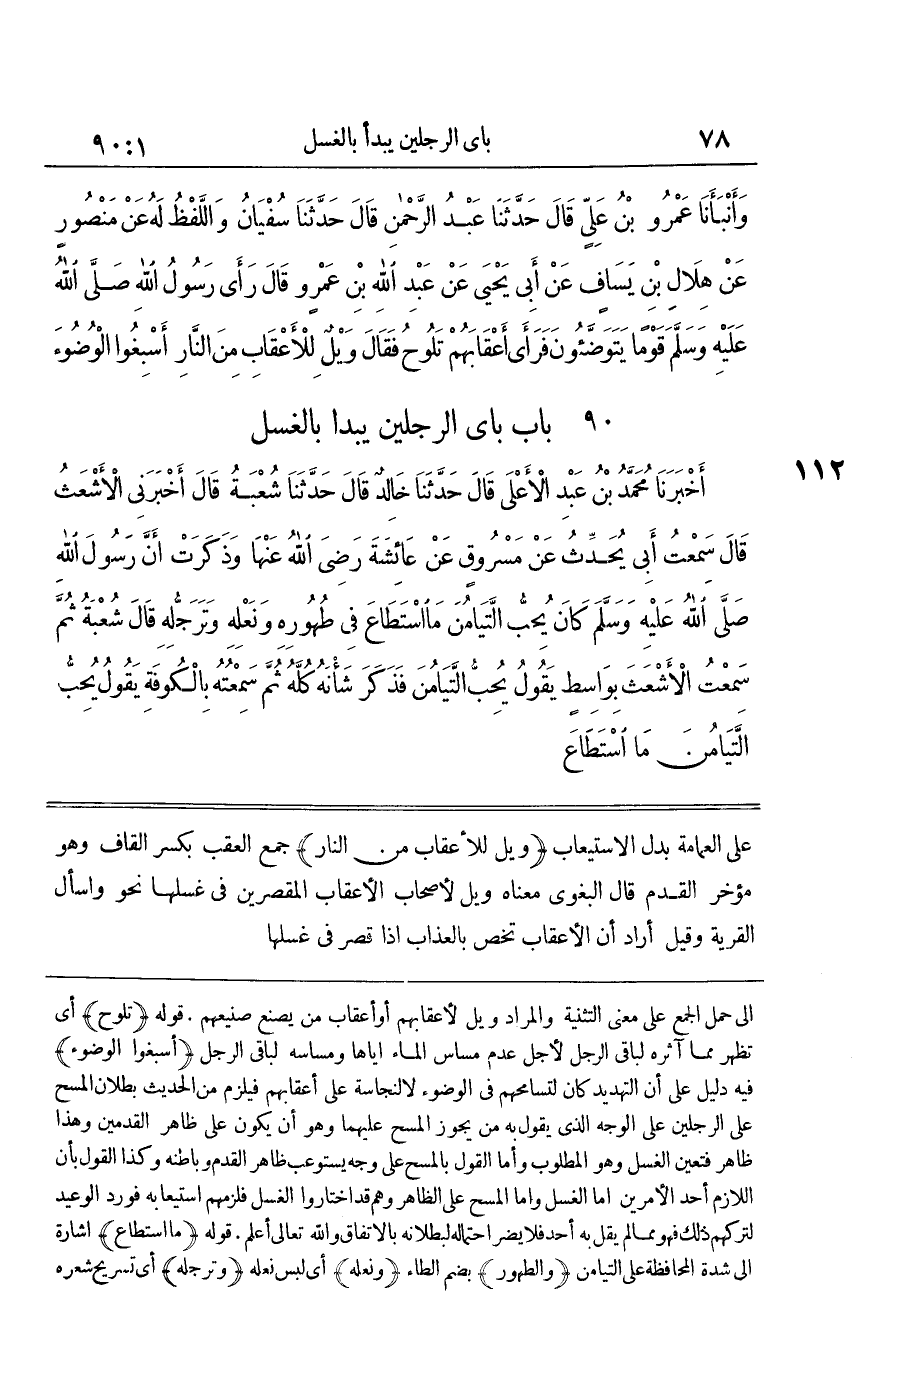 ٧٨ باى الرجلين يبدأ بالغسل ٩٠:١
وَأَنْبَأَنَا عَمْرُو بْنُ عَلِيٍّ قَالَ حَدَّثَنَا عَبْدُ الرَّحْمٰنِ قَالَ حَدَّثَنَا سُفْيَانُ وَاللَّفْظُ لَهُ عَنْ مَنْصُورٍ
عَنْ هِلَالِ بْنِ يَسَافٍ عَنْ أَبِى يَحْيَى عَنْ عَبْدِ اللهِ بْنِ عَمْرٍو قَالَ رَأَى رَسُولُ اللهِ صَلَّى اللهُ
عَلَيْهِ وَسَلَّمَ قَوْمًا يَتَوَضَّئُونَ فَرَأَى أَعْقَابَهُمْ تَلُوحُ فَقَالَ وَيْلٌ لِلْأَعْقَابِ مِنَ النَّارِ أَسْبِغُوا الْوُضُوءَ
٩٠ باب باى الرجلين يبدا بالغسل
١١٢ أَخْبَرَنَا مُحَمَّدُ بْنُ عَبْدِ الْأَعْلَى قَالَ حَدَّثَنَا خَالِدٌ قَالَ حَدَّثَنَا شُعْبَةُ قَالَ أَخْبَرَنِى الْأَشْعَثُ
قَالَ سَمِعْتُ أَبِى يُحَدِّثُ عَنْ مَسْرُوقٍ عَنْ عَائِشَةَ رَضِىَ اللهُ عَنْهَا وَذَكَرَتْ أَنَّ رَسُولَ اللهِ
صَلَّى اللهُ عَلَيْهِ وَسَلَّمَ كَانَ يُحِبُّ التَّيَامُنَ مَا اسْتَطَاعَ فِى طُهُورِهِ وَنَعْلِهِ وَتَرَجُّلِهِ قَالَ شُعْبَةُ ثُمَّ
سَمِعْتُ الْأَشْعَثَ بِوَاسِطٍ يَقُولُ يُحِبُّ التَّيَامُنَ فَذَكَرَ شَأْنَهُ كُلَّهُ ثُمَّ سَمِعْتُهُ بِالْكُوفَةِ يَقُولُ يُحِبُّ
التَّيَامُنَ مَا اسْتَطَاعَ
على العمامة بدل الاستيعاب ﴿ويل للأعقاب من النار﴾ جمع العقب بكسر القاف وهو
مؤخر القدم قال البغوى معناه ويل لأصحاب الأعقاب المقصرين فى غسلها نحو واسأل
القرية وقيل أراد أن الأعقاب تخص بالعذاب اذا قصر فى غسلها
الى حمل الجمع على معنى التثنية والمراد ويل لأعقابهم أو أعقاب من يصنع صنيعهم . قوله ﴿تلوح﴾ أى
تظهر مما آثره لباقى الرجل لأجل عدم مساس الماء اياها ومساسه لباقى الرجل ﴿أسبغوا الوضوء﴾
فيه دليل على أن التهديد كان لتسامحهم فى الوضوء لا لنجاسة على أعقابهم فيلزم من الحديث بطلان المسح
على الرجلين على الوجه الذى يقول به من يجوز المسح عليهما وهو أن يكون على ظاهر القدمين وهذا
ظاهر فتعين الغسل وهو المطلوب وأما القول بالمسح على وجه يستوعب ظاهر القدم وباطنه وكذا القول بأن
اللازم أحد الأمرين اما الغسل واما المسح على الظاهر وهم قد اختاروا الغسل فلزمهم استيعابه فورد الوعيد
لتركهم ذلك فهو مما لم يقل به أحد فلا يضر احتماله لبطلانه بالاتفاق والله تعالى أعلم . قوله ﴿ما استطاع﴾ اشارة
الى شدة المحافظة على التيامن ﴿والطهور﴾ بضم الطاء ﴿ونعله﴾ أى لبس نعله ﴿وترجله﴾ أى تسريح شعره